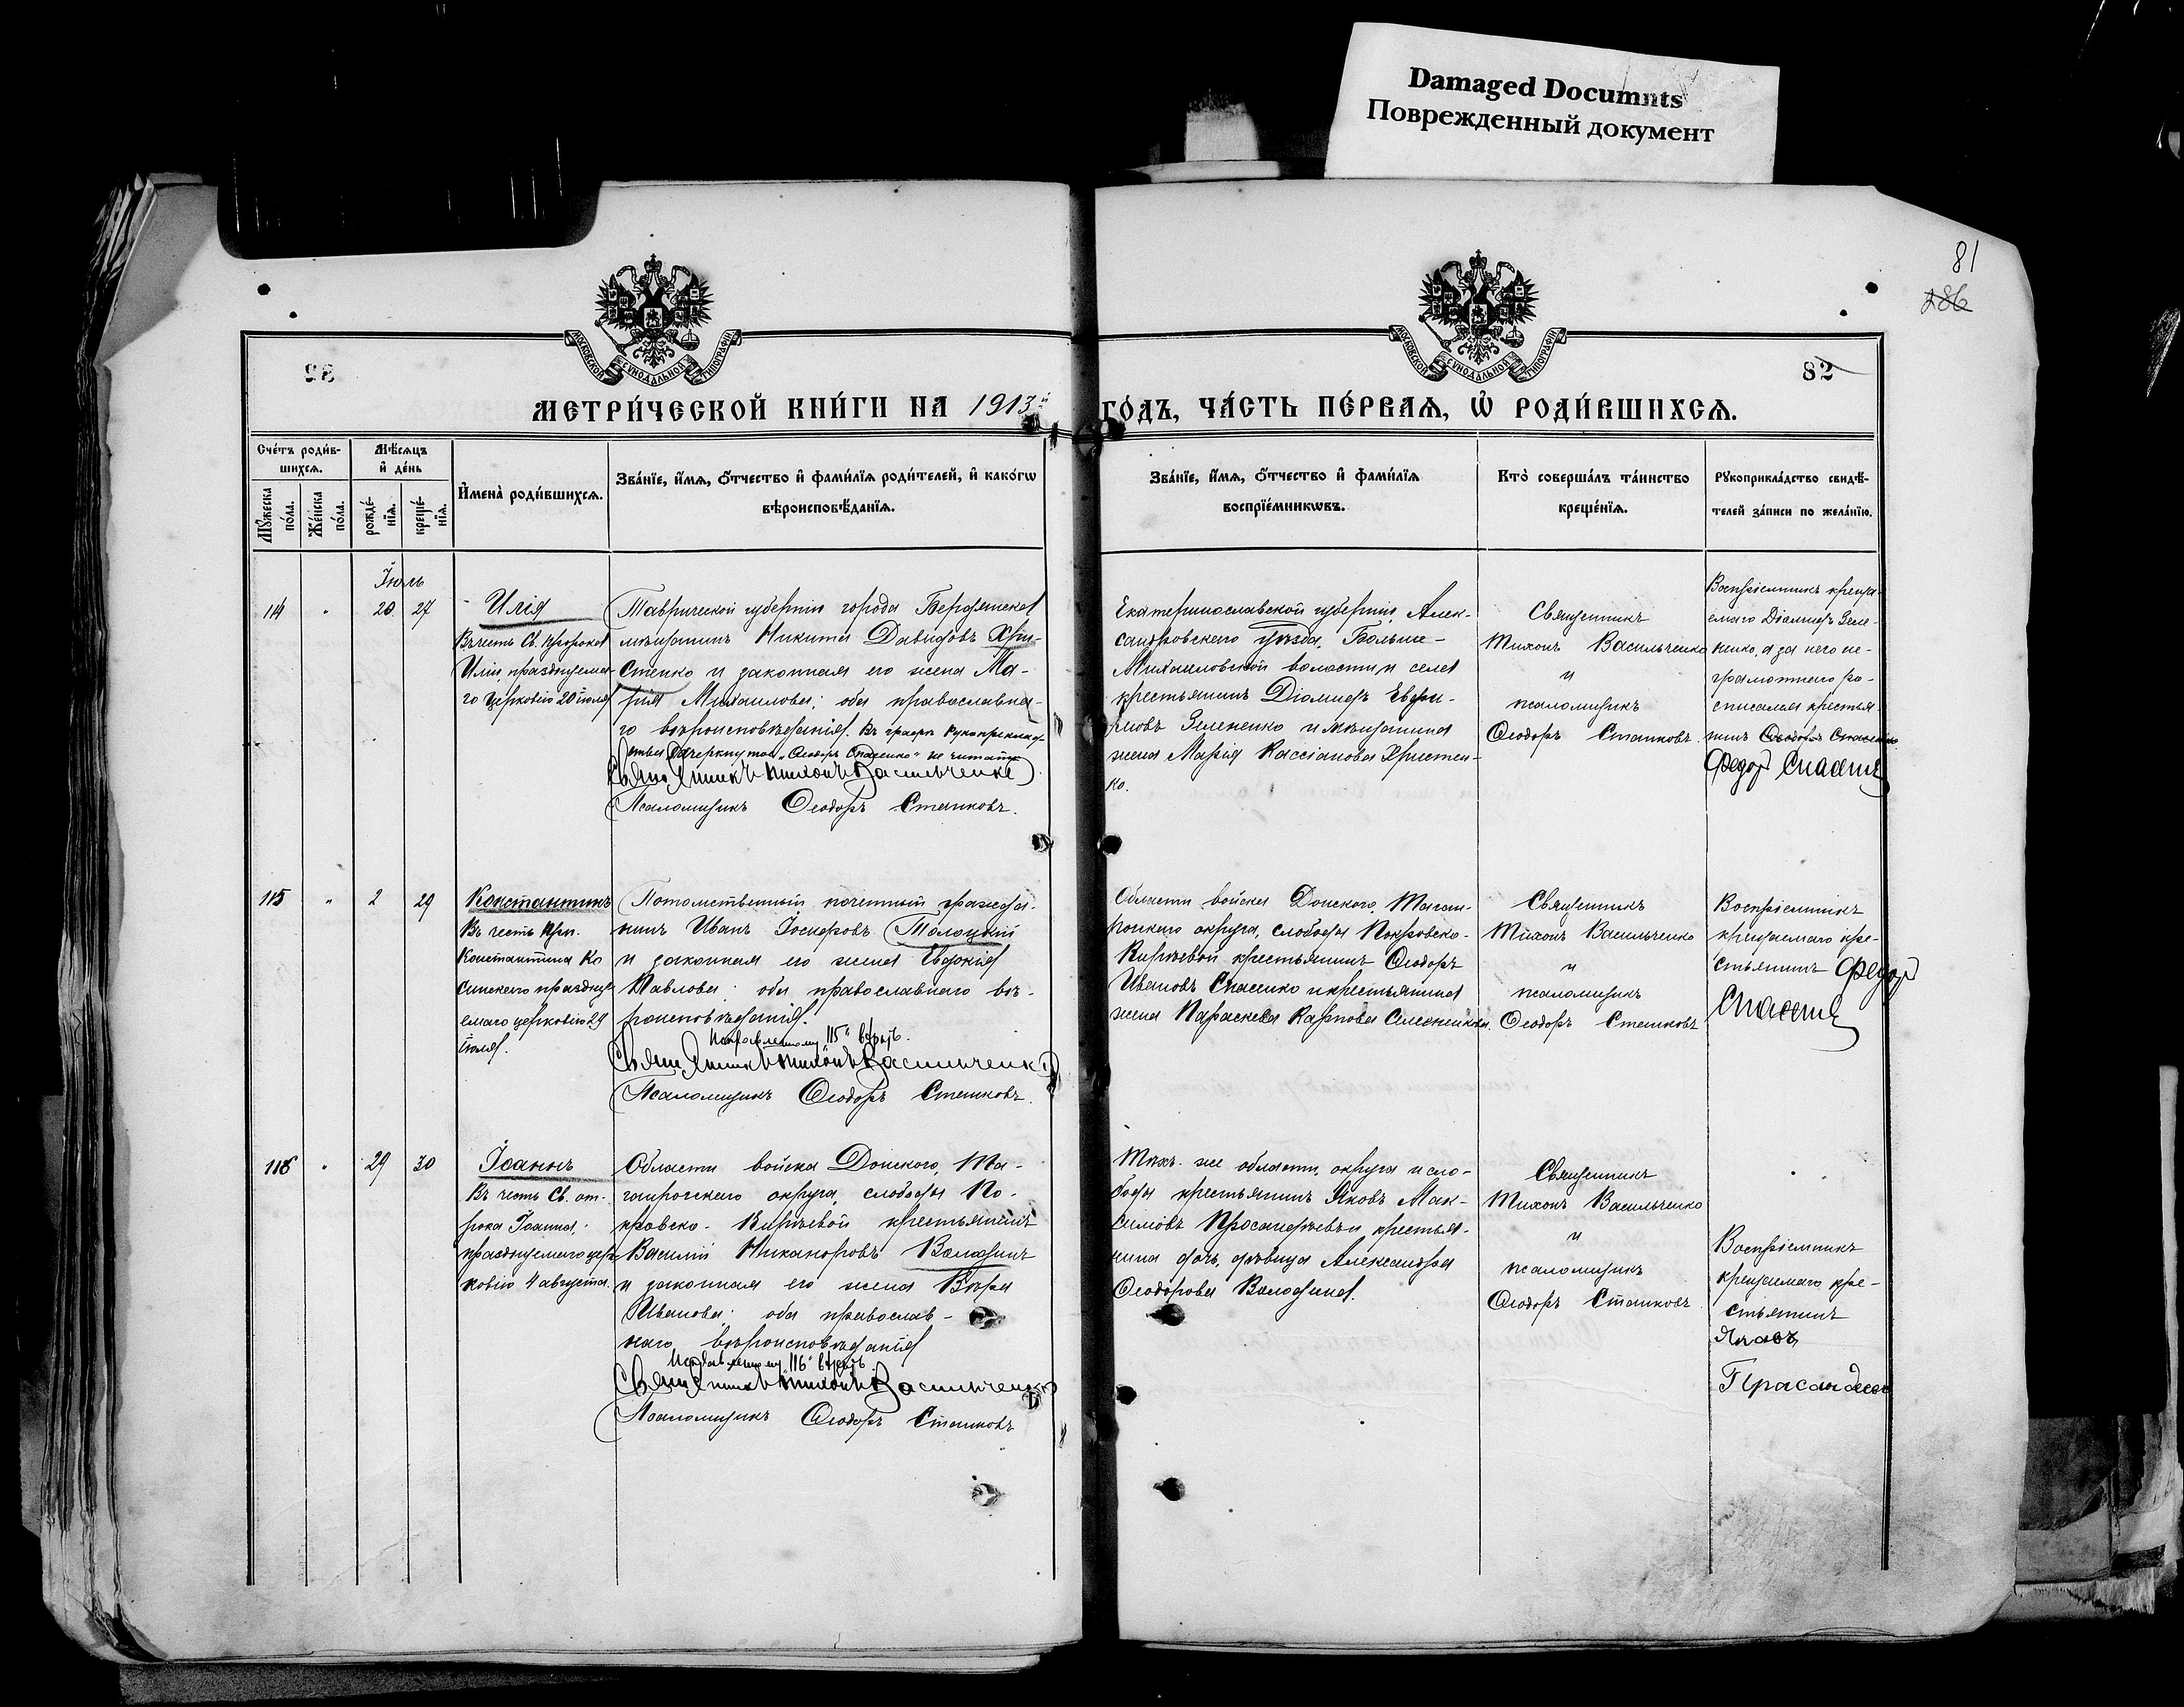 Damaged Documnts
Поврежденный документ
81
286
МОСКОВСКОЙ СѴНОДАЛЬНОЙ ТИПОГРАФІИ
МОСКОВСКОЙ СѴНОДАЛЬНОЙ ТИПОГРАФІИ
82
МЕТРИ́ЧЕСКОЙ КНИ́ГИ НА 1913й
ГО́ДЪ, ЧА́СТЬ ПЕ́РВАѦ, Ѡ҆ РОДИ́ВШИХСѦ.
Сче́тъ роди́в-
шихсѧ.
Мꙋ́жеска
по́ла.
Же́нска
по́ла.
Мѣ́сѧцъ
и҆ де́нь
рожде́-
нїѧ.
креще́-
нїѧ.
И҆мена̀ роди́вшихсѧ.
Зва́нїе, и҆́мѧ, ѻ҆́тчество и҆ фами́лїѧ роди́телей, и҆ како́гѡ
вѣроисповѣ́данїѧ.
Зва́нїе, и҆́мѧ, ѻ҆́тчество и҆ фами́лїѧ
воспрїе́мникѡвъ.
Кто̀ соверша́лъ та́инство
креще́нїѧ.
Рꙋкоприкла́дство свидѣ́-
телей за́писи по жела́нїю.
Іюль
114 " 20 27
Илія
Въ честь Св. пророка
Иліи, празднуема-
го церковію 20 іюля
Таврической губерніи города Бердянска
мѣщанинъ Никита Давидовъ Хри-
стенко и законная его жена Ма-
рія Михаилова; оба православна-
го вѣроисповѣданія. Въ графѣ рукоприклад-
ства зачеркнутое „Ѳеодоръ Спасенко" не читать
Священникъ Тихонъ Васильченко
Псаломщикъ Ѳеодоръ Станковъ.
Екатеринославской губерніи, Алек-
сандровскаго уѣзда, Больше-
Михаиловской волости и села
крестьянинъ Діомидъ Евфи-
мовъ Зелененко и мѣщанина
жена Марія Кассіанова Христен-
ко.
Священникъ
Тихонъ Васильченко
и
псаломщикъ
Ѳеодоръ Станковъ.
Воспріемникъ креща-
емаго Діомидъ Зеле-
ненко, а за него не-
грамотнаго ро-
списался крестья-
нинъ Ѳеодоръ Спасенко
Федор Спасенко
115 " 2 29
Константинъ
Въ честь Прп.
Константина Ко
синскаго праздну-
емаго церковію 29
іюля.
Потомственный почетный гражда-
нинъ Иванъ Іосифовъ Толоцкій
и законная его жена Евдокія
Павлова; оба православнаго вѣ-
роисповѣданія.
Исправленному „115" вѣрить.
Священникъ Тихонъ Васильченко
Псаломщикъ Ѳеодоръ Станковъ.
Области войска Донского, Таган-
рогскаго округа, слободы Покровско-
Кирѣевой крестьянинъ Ѳеодоръ
Ивановъ Спасенко и крестьянина
жена Параскева Карпова
Священникъ
Тихонъ Васильченко
и
псаломщикъ
Ѳеодоръ Станковъ
Воспріемникъ
крещаемаго кре-
стьянинъ Федор
Спасенко
116 " 29 30
Іоаннъ
Въ честь Св. от-
рока Іоанна,
празднуемаго цер-
ковію 4 августа.
Области войска Донского, Та-
ганрогскаго округа, слободы По-
кровско-Кирѣевой крестьянинъ
Василій Никаноровъ Володинъ
и законная его жена Вѣра
Иванова; оба православ-
наго вѣроисповѣданія
Исправленному „116" вѣрить.
Священникъ Тихонъ Васильченко
Псаломщикъ Ѳеодоръ Станковъ
Тѣхъ-же области, округа и сло-
боды крестьянинъ Яковъ Мак-
симовъ Просандѣевъ и крестья-
нина дочь, дѣвица Александра
Ѳеодорова Володина.
Священникъ
Тихонъ Васильченко
и
псаломщикъ
Ѳеодоръ Станковъ.
Воспріемникъ
крещаемаго кре-
стьянинъ
Яковъ
Прасандеев